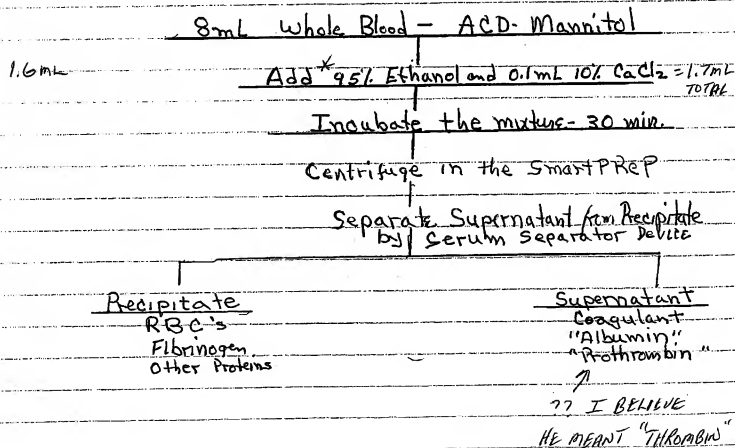 8mL Whole Blood - ACD-Mannitol
1.6mL
Add *95% Ethanol and 0.1mL 10% CaCl2 = 1.7mL
TOTAL
Incubate the mixture - 30 min.
Centrifuge in the SmartPReP
Separate Supernatant from Precipitate
by Serum Separator Device
Precipitate
RBC's
Fibrinogen
Other Proteins
Supernatant
Coagulant
"Albumin"
"Prothrombin"
?? I BELIEVE
HE MEANT "THROMBIN"